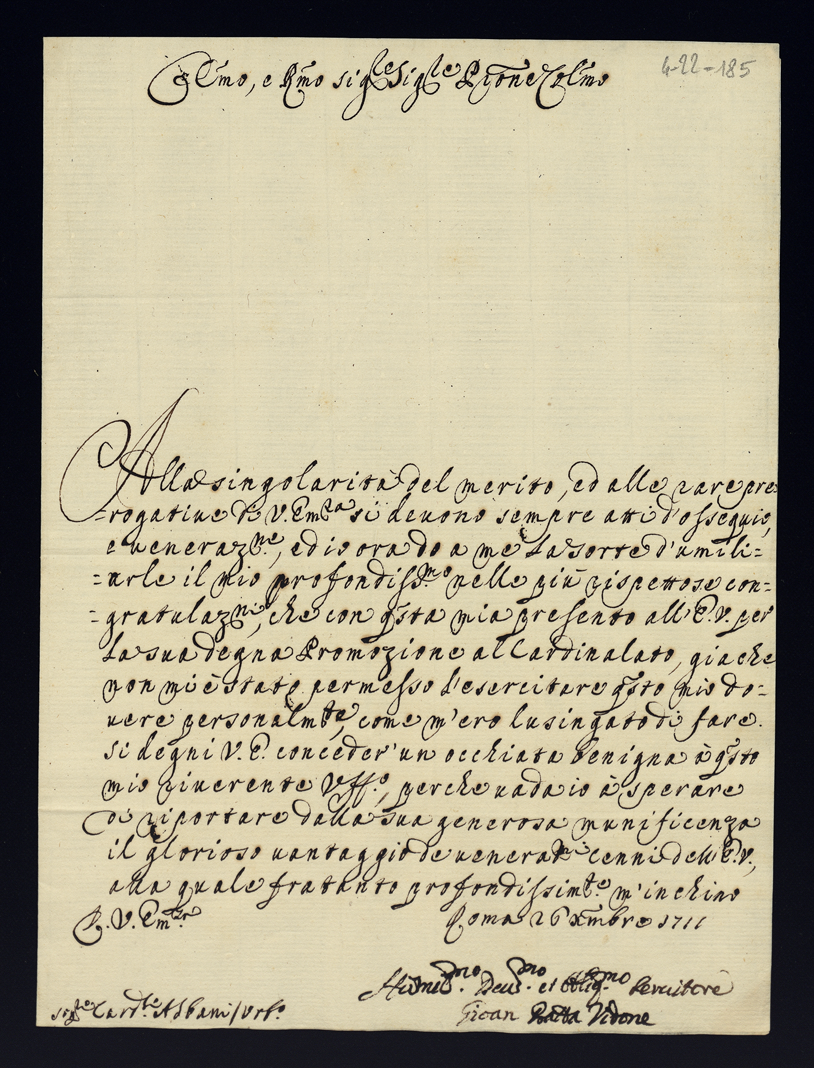 Em̃o, e Rm̃o sig.re Sig.re Pron̄e Col̄mo
4-22-185
Alla singolarità del merito, ed alle rare pre
=rogatiue di V. Em.za si deuono sempre atti d'ossequio,
e ueneraz.ne, ed io ora do a me la sorte d'umili=
=arle il mio profondiss.mo nelle più rispettose con=
=gratulaz.ni, che con q̃sta mia presento all'E.V. per
la sua degna Promozione al Cardinalato, giache
non mi è stato permesso d'esercitare q̃sto mio do=
uere personalm.te, come m'ero lusingato di fare.
Si degni V. E. conceder' un occhiata benigna à q̃sto
mio riuerente Uff.o, perche uada io à sperare
di riportare dalla sua generosa munificenza
il glorioso uantaggio de uenerati cenni dell'E.V.,
alla quale fratanto profondissim.te m'inchino
D. V. Em.za Roma 26 Xm̃bre 1711
Humil.mo Deu.mo et Oblig.mo Seruitore
Sig.re Card.le Albani/Urb.o Gioan Batta Vidone